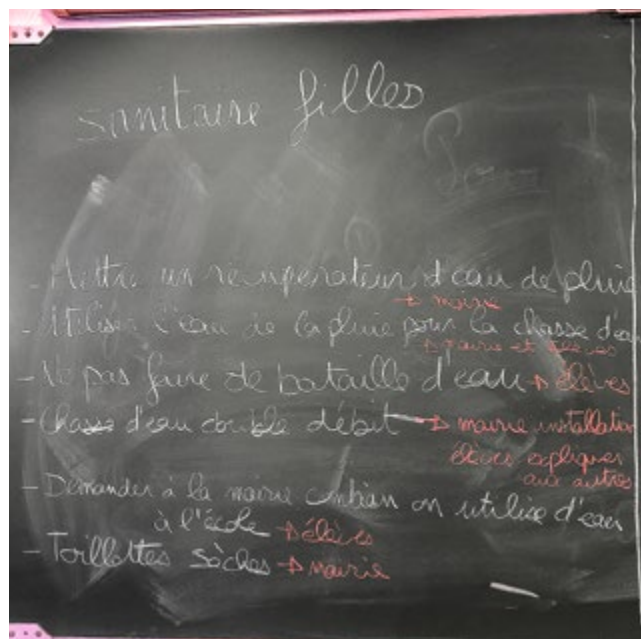 sanitaire filles
- Mettre un récupérateur d'eau de pluie
→ mairie
- Utiliser l'eau de la pluie pour la chasse d'eau
→ mairie et élèves
- Ne pas faire de bataille d'eau → élèves
- Chasse d'eau double débit → mairie installation
élèves expliquer
aux autres
- Demander à la mairie combien on utilise d'eau
à l'école → élèves
- Toillettes sèches → mairie